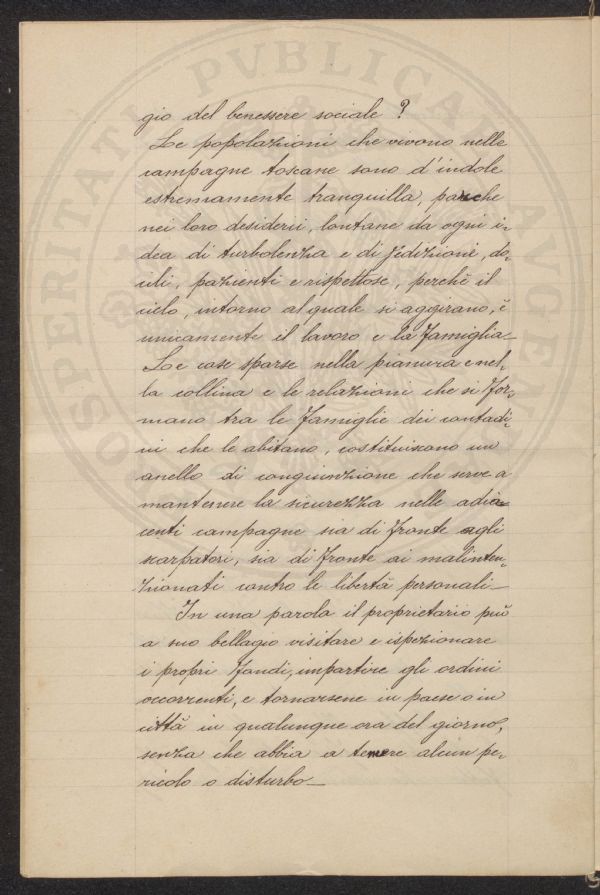 PROSPERITATI PVBLICAE AVGENDAE
gio del benessere sociale ?
Le popolazioni che vivono nelle
campagne toscane sono d'indole
estremamente tranquilla, parche
nei loro desiderii, lontane da ogni i-
dea di turbolenza e di sedizione, do-
cili, pazienti e rispettose, perchè il
cielo, intorno al quale si aggirano, è
unicamente il lavoro e la famiglia_
Le case sparse nella pianura e nel-
la collina e le relazioni che si for-
mano tra le famiglie dei contadi-
ni che le abitano, costituiscono un
anello di congiunzione che serve a
mantenere la sicurezza nelle adia-
centi campagne sia di fronte agli
scarpatori, sia di fronte ai malinten-
zionati contro le libertà personali_
In una parola il proprietario può
a suo bellagio visitare e ispezionare
i propri fondi, impartire gli ordini
occorrenti, e tornarsene in paese o in
città in qualunque ora del giorno,
senza che abbia a temere alcun pe-
ricolo o disturbo_